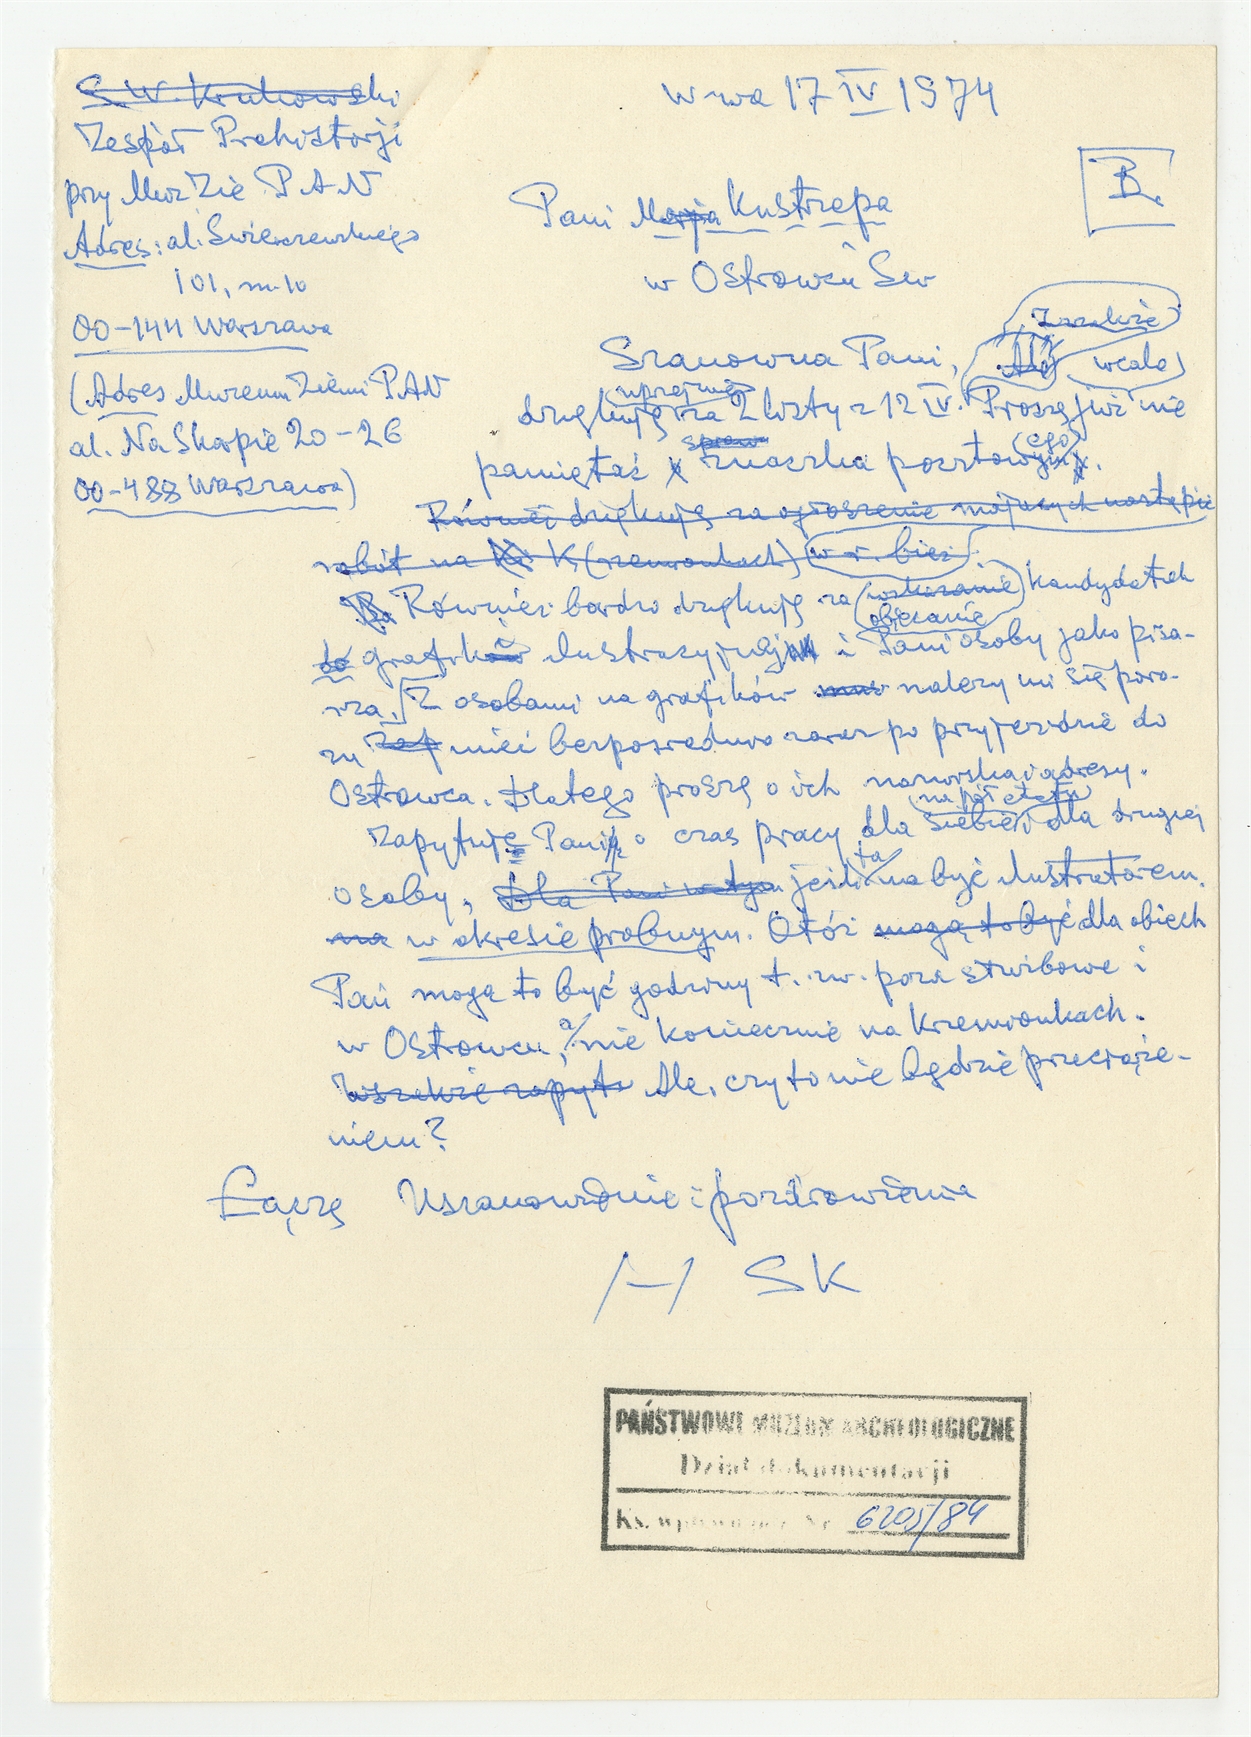 S. W. Krukowski
Zespół Prehistorji
przy Muz Zie PAN
Adres: al. Świerczewskiego
101, m. 10
00-144 Warszawa
(Adres Muzeum Ziemi PAN
al. Na Skarpie 20-26
00-488 Warszawa)
W-wa 17 IV 1974
B.
Pani Marja Kustrzepa
w Ostrowcu Św
Szanowna Pani,
Wszakże
Ale wcale
uprzejmie
dziękuję za 2 listy z 12 IV. Proszę już nie
spraw
pamiętać znaczka pocztowego.
Również dziękuję za ogłoszenie mojących nastąpić
robót na K (rzemionkach) w r. bież.
Również bardzo dziękuję za wskazanie kandydatek
obiecanie
do grafiki ilustracyjnej i Pani osoby jako pisa-
rza. Z osobami na grafików należy mi się poro-
zu mieć bezpośrednio zaraz po przyjeździe do
Ostrowca. Dlatego proszę o ich nazwiska i adresy.
na pół etatu
Zapytuję Panią o czas pracy dla siebie i dla drugiej
osoby, Dla Pani jeśli ta ma być ilustratorem.
ma w okresie próbnym. Otóż mogą to być dla obiech
Pań mogą to być godziny t. zw. poza służbowe i
w Ostrowcu, a nie koniecznie na Krzemionkach.
Wszakże zapyt Ale, czy to nie będzie przeciąże-
niem?
Łączę Uszanowanie i pozdrowienia
/-/ SK
PAŃSTWOWE MUZEUM ARCHEOLOGICZNE
Dział dokumentacji
Ks. wpływów Nr 6205/84